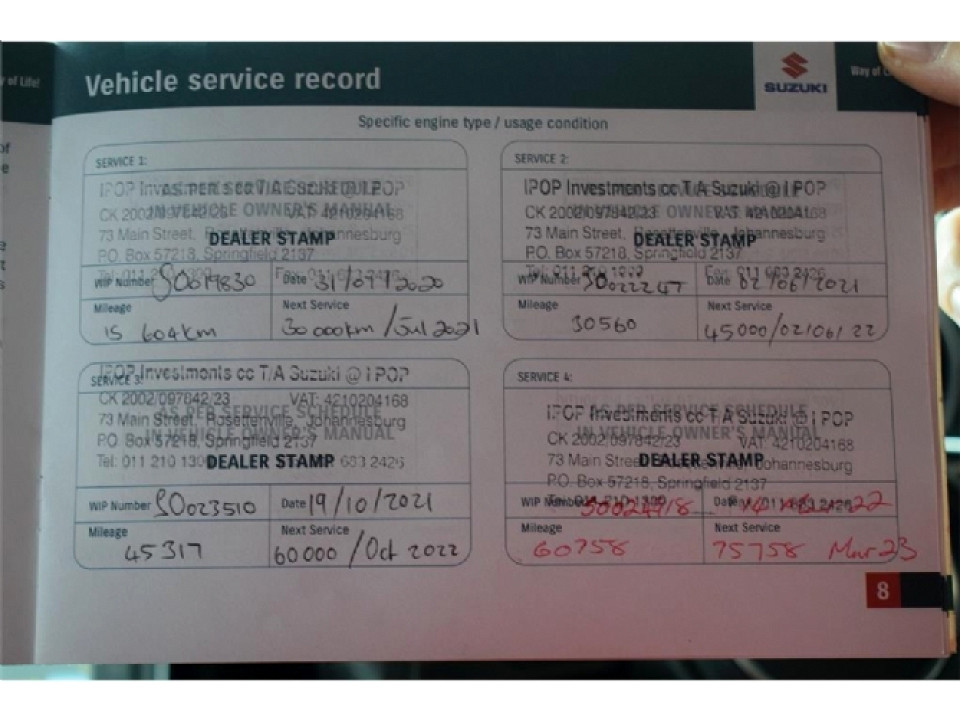 y of Life!
Vehicle service record
SUZUKI
Way of
Specific engine type / usage condition
SERVICE 1:
IPOP Investments cc T/A Suzuki @ I POP
AS PER SERVICE SCHEDULE
IN VEHICLE OWNER'S MANUAL
CK 2002/097842/23 VAT: 4210204168
73 Main Street, Rosettenville, Johannesburg
DEALER STAMP
P.O. Box 57218, Springfield 2137
WIP Number SO019830 Date 31/07/2020
Mileage Next Service
15 604km 30 000km / Jul 2021
SERVICE 2:
IPOP Investments cc T/A Suzuki @ I POP
CK 2002/097842/23 VAT: 4210204168
OWNER'S MANUAL
73 Main Street, Rosettenville, Johannesburg
DEALER STAMP
P.O. Box 57218, Springfield 2137
WIP Number SO022247 Date 02/06/2021
Mileage Next Service
30560 45000/02/06/22
SERVICE 3:
IPOP Investments cc T/A Suzuki @ I POP
CK 2002/097842/23 VAT: 4210204168
AS PER SERVICE SCHEDULE
73 Main Street, Rosettenville, Johannesburg
IN VEHICLE OWNER'S MANUAL
P.O. Box 57218, Springfield 2137
Tel: 011 210 1300 DEALER STAMP 683 2426
WIP Number SO023510 Date 19/10/2021
Mileage Next Service
45317 60000 / Oct 2022
SERVICE 4:
AS PER SERVICE SCHEDULE
IPOP Investments cc T/A Suzuki @ I POP
IN VEHICLE OWNER'S MANUAL
CK 2002/097842/23 VAT: 4210204168
73 Main Street, Johannesburg
DEALER STAMP
P.O. Box 57218, Springfield 2137
WIP Number Date 22
Mileage Next Service
60758 75758 Mar 23
8